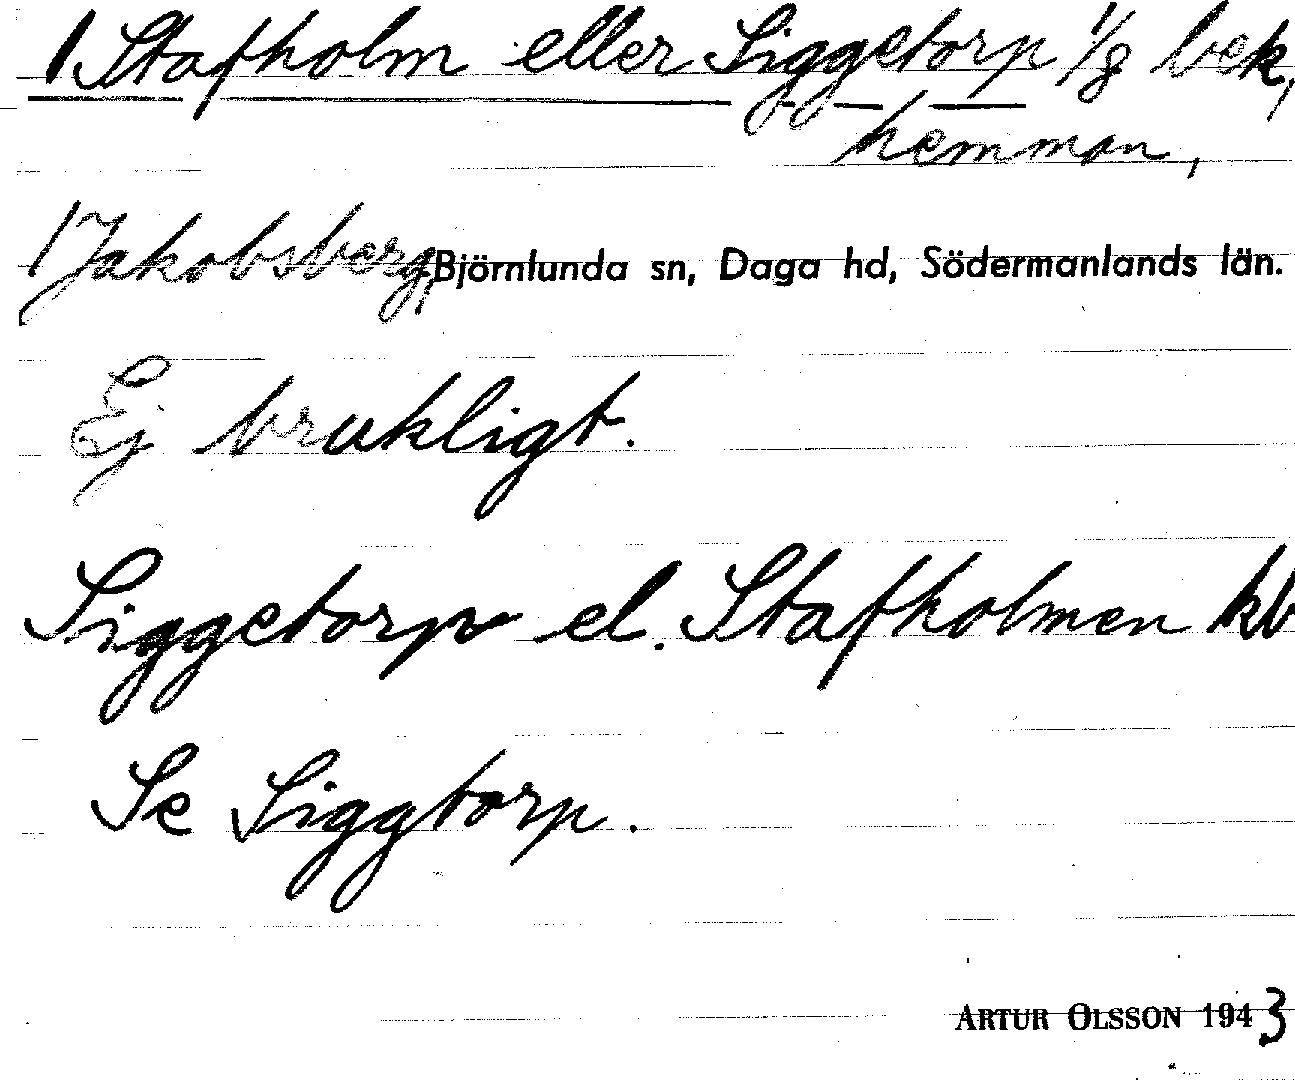 1 Stafholm eller Siggetorp 1/8 bek,
hemman,
1 Jakobsberg, Björnlunda sn, Daga hd, Södermanlands län.
Ej brukligt.
Siggetorp el. Stafholmen kb
Se Siggtorp.
ARTUR OLSSON 1943